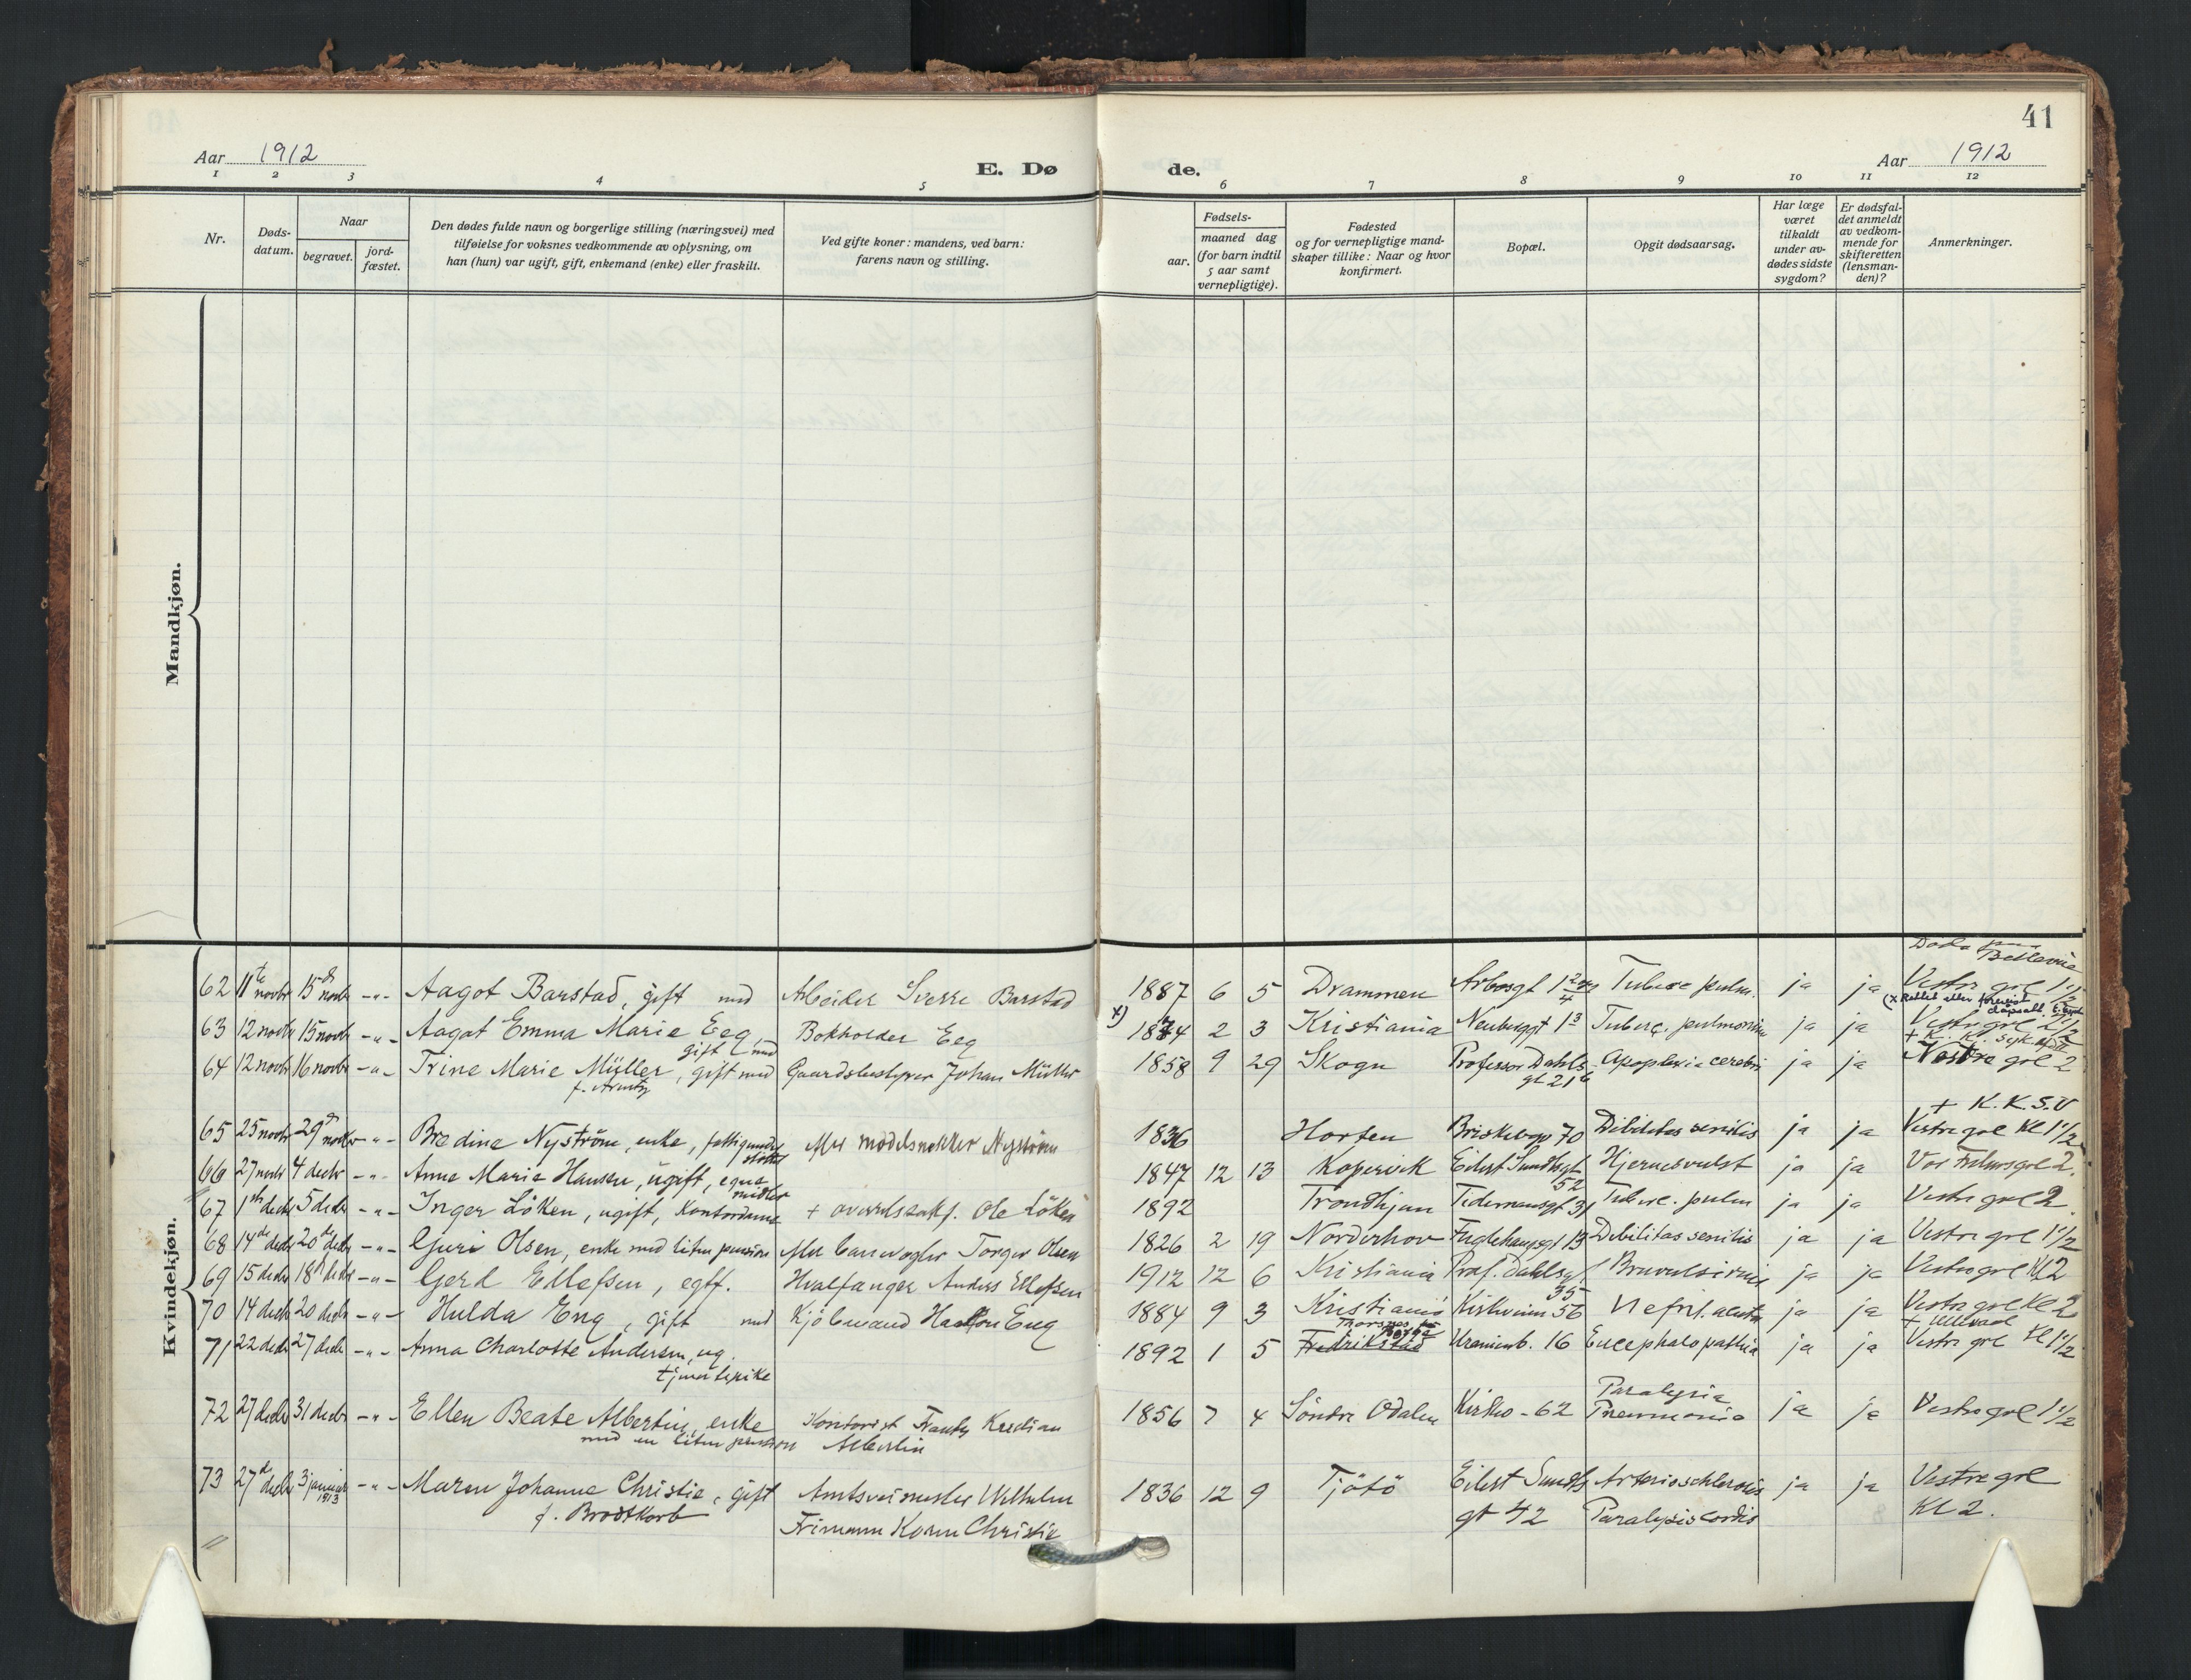 41
Aar 1912
E. Døde.
Aar 1912
1 2 3 4 5 6 7 8 9 10 11 12
Nr.
Døds-
datum.
Naar
begravet.
jord-
fæstet.
Den dødes fulde navn og borgerlige stilling (næringsvei) med
tilføielse for voksnes vedkommende av oplysning, om
han (hun) var ugift, gift, enkemand (enke) eller fraskilt.
Ved gifte koner: mandens, ved barn:
farens navn og stilling.
Fødsels-
aar.
maaned dag
(for barn indtil
5 aar samt
vernepligtige).
Fødested
og for vernepligtige mand-
skaper tillike: Naar og hvor
konfirmert.
Bopæl.
Opgit dødsaarsag.
Har læge
været
tilkaldt
under av-
dødes sidste
sygdom?
Er dødsfal-
det anmeldt
av vedkom-
mende for
skifteretten
(lensman-
den)?
Anmerkninger.
Mandkjøn.
Kvindekjøn.
Døde paa
Bellevue
62 11te novbr 15de novbr -"- Aagot Barstad, gift med Arbeider Sverre Barstad 1887 6 5 Drammen Tuberc pulm. ja ja Vestre gvl 1 1/2
63 12 novbr 15 novbr -"- Aagot Emma Marie Eeg, Bokholder Eeg x) 1874 2 3 Kristiania Neuberggt 1 3 Tuberc. pulmonum ja ja Vestre gvl 2 1/2
gift med
(x Rettet efter forevist daapsatt.
64 12 novbr 16 novbr -"- Trine Marie Müller, gift med Gaardsbestyrer Johan Müller 1858 9 29 Skogn Professor Dahls Apoplexia cerebri ja ja Vestre gvl 2
f. Arentz
gt 21
+ K.K.S.V
65 25 novbr 29de novbr -"- Bredine Nyström, enke, fattigunder Mer modelsnekker Nyström 1836 Horten Briskebyv 70 Debilitas senilis ja ja Vestre gvl Kl 1 1/2
støttet
66 27 novbr 4 decbr -"- Anne Marie Hansen, ugift, egne 1847 12 13 Kopervik Eilert Sundtsgt Hjernesvulst ja ja Vor Frelsers gvl 2.
midler
52
67 1ste decbr 5 decbr -"- Inger Löken, ugift, Kontordame + overretssakf. Ole Löken 1892 Trondhjem Tidemansgt 31 Tuberc. pulm ja ja Vestre gvl 2
68 14de decbr 20de decbr -"- Guri Olsen, enke med liten pension Torger Olsen 1826 2 19 Norderhov Fuglehaugsgt 13 Debilitas senilis ja ja Vestre gvl 1 1/2
69 15 decbr 18 decbr -"- Gerd Ellefsen, egtf. Hvalfanger Anders Ellefsen 1912 12 6 Kristiania Prof. Dahlsgt ja ja Vestre gvl Kl 2
35
70 14 decbr 20 decbr -"- Hulda Eng, gift med Kjöbmand Haakon Eng 1884 9 3 Kristiania Kirkeveien 56 Nefrit. acuta ja ja Vestre gvl Kl 2
Thorsnes pr
Borge
+ Ullevaal
71 22 decbr 27 decbr -"- Anna Charlotte Andersen, ug. 1892 1 5 Fredrikstad Uranienb. 16 Encephalopathia ja ja Vestre gvl Kl 1 1/2
tjenestepike
Paralysia
72 27 decbr 31 decbr -"- Ellen Beate Albertin, enke Kontorist Frantz Kristian 1856 7 4 Söndre Odalen Kirkev - 62 Pneumonia ja ja Vestre gvl 1 1/2
med en liten pension Albertin
73 27de decbr 3 januar -"- Maren Johanne Christie, gift Amtsveimester Wilhelm 1836 12 9 Tjøtø Eilert Sundts Arteriosclerosis ja ja Vestre gvl
1913
f. Brodtkorb Frimann Koren Christie gt 42 Paralysis cordis Kl 2.